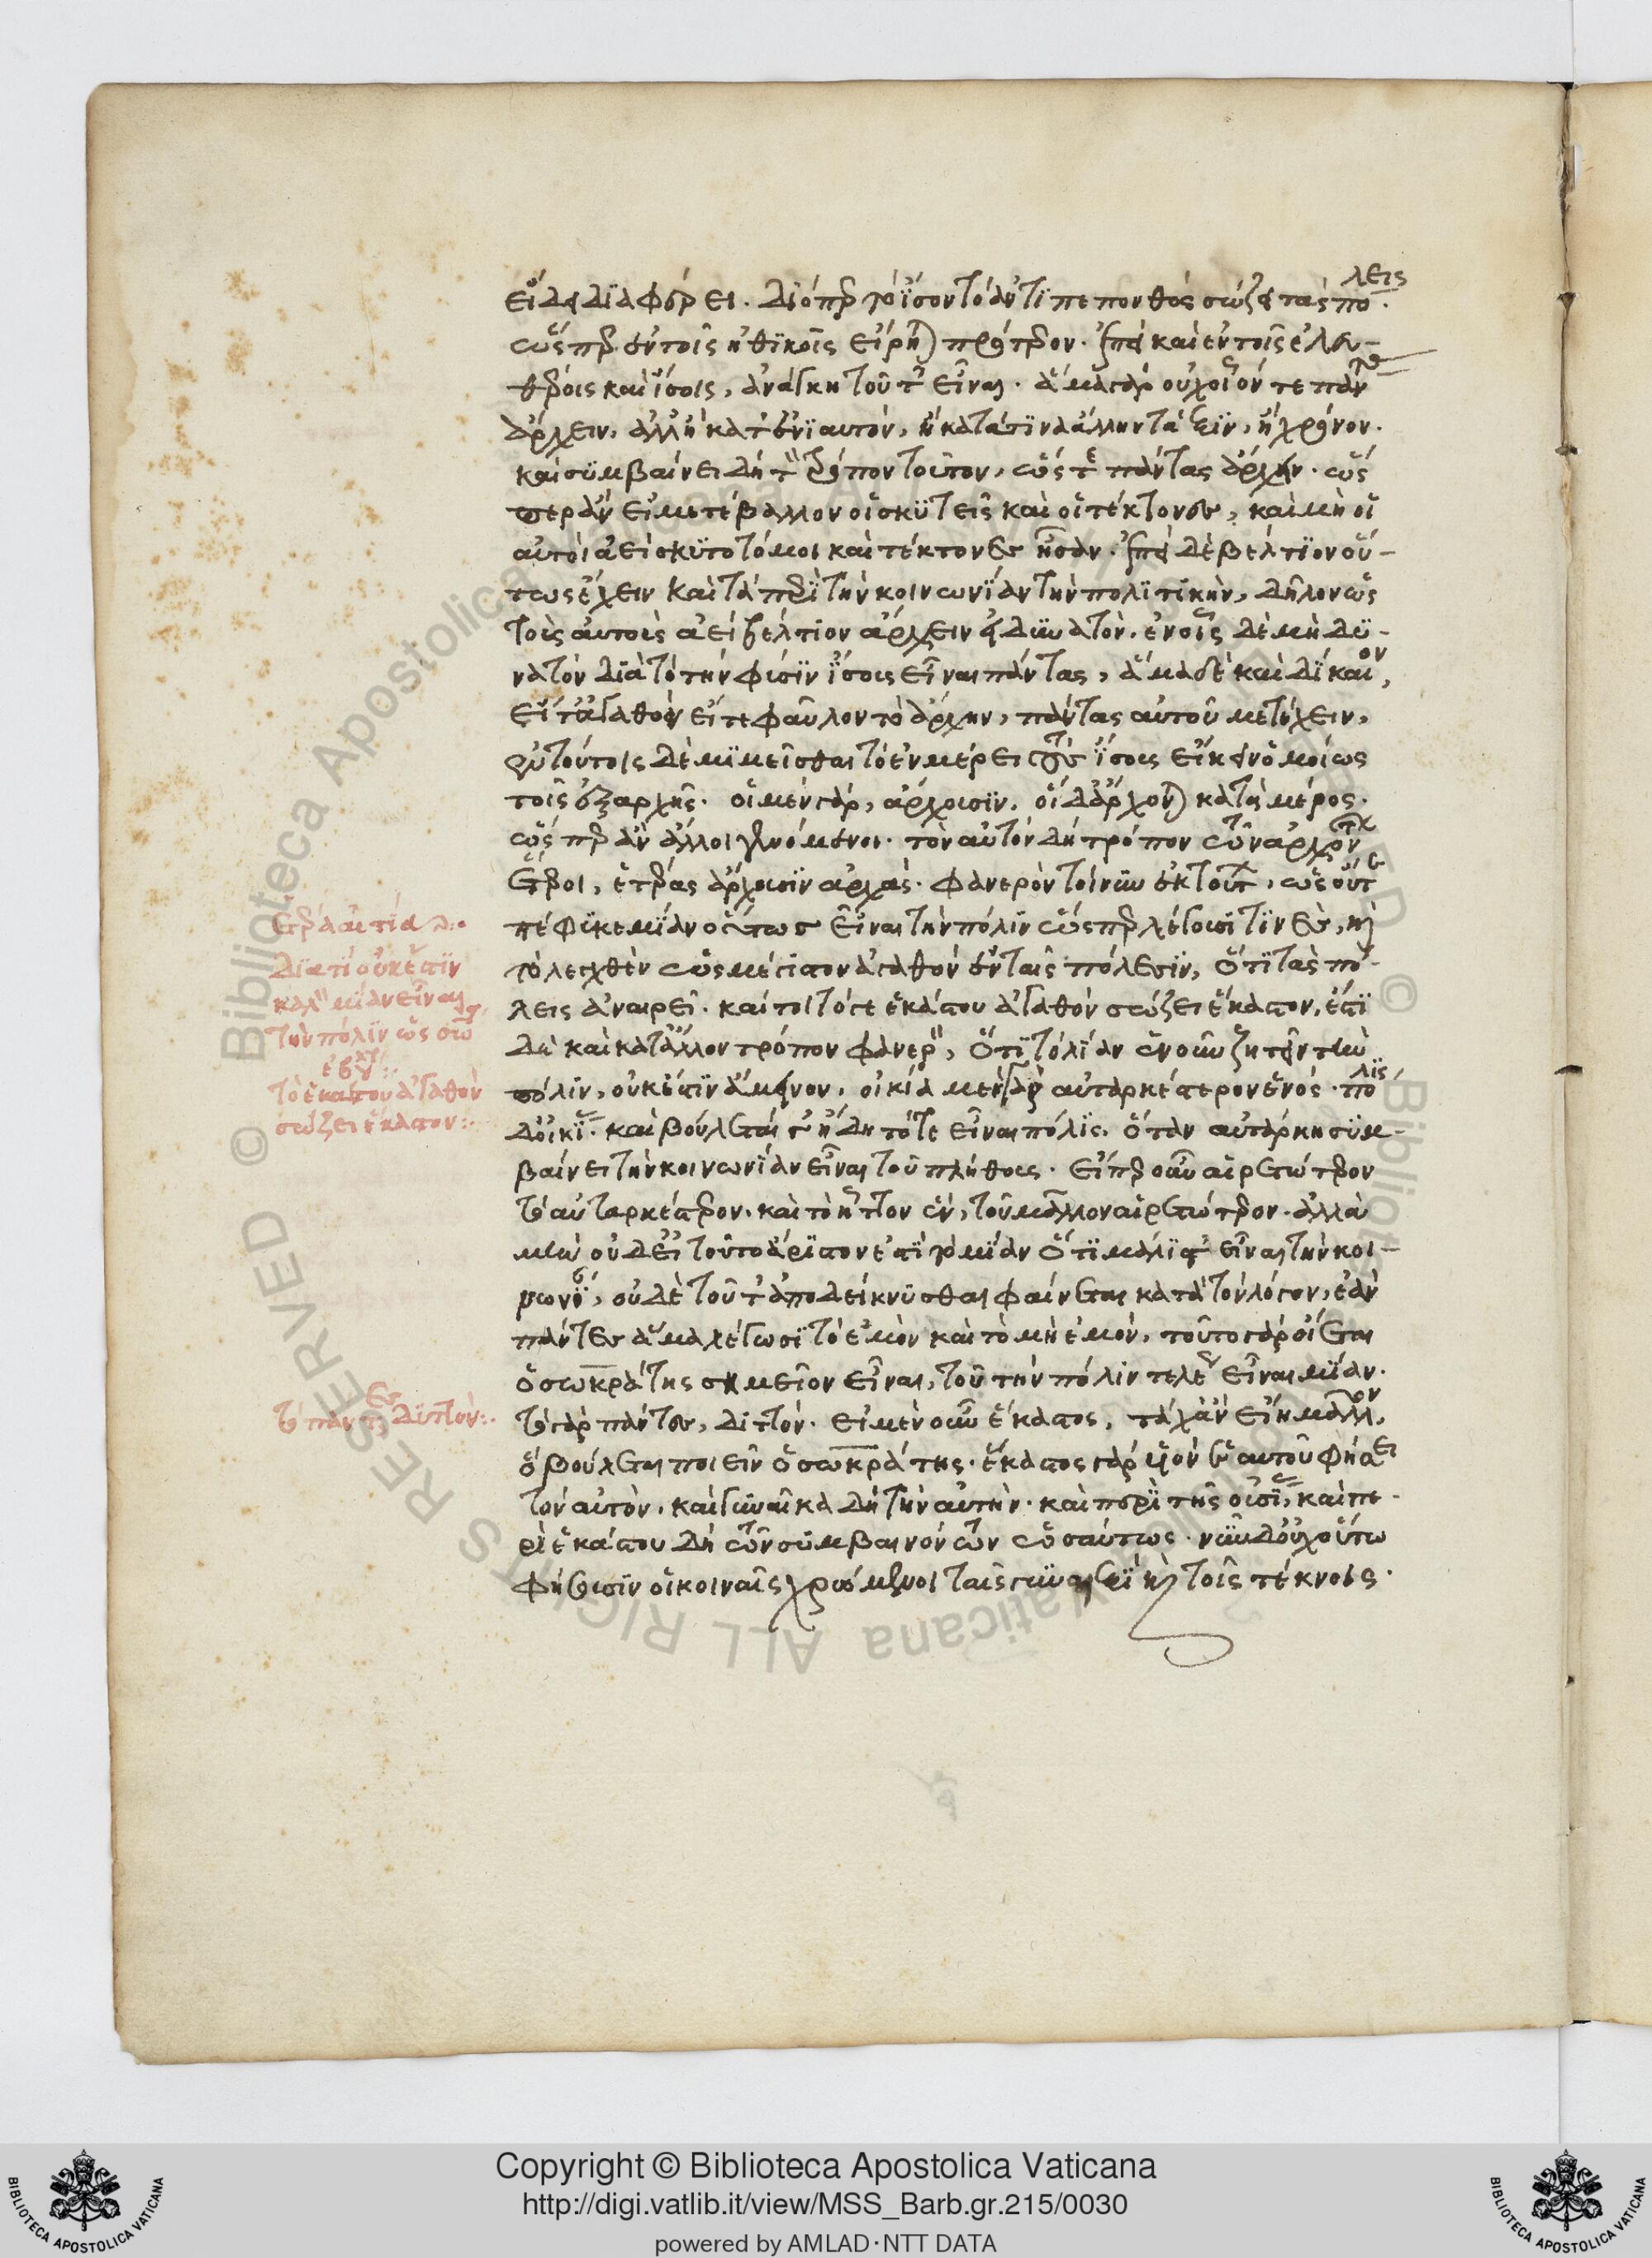 εἴδει διαφέρει. διόπερ τὸ ἴσον τὸ ἀντιπεπονθὸς σώζει τὰς πόλεις.
ὥσπερ ἐν τοῖς ἠθικοῖς εἴρηται πρότερον. ἐπεὶ καὶ ἐν τοῖς ἐλευ-
θέροις καὶ ἴσοις, ἀνάγκη τοῦτ' εἶναι. ἅμα γὰρ οὐχ οἷόν τε πάντας
ἄρχειν, ἀλλ' ἢ κατ' ἐνιαυτὸν, ἢ κατά τινα ἄλλην τάξιν, ἢ χρόνον.
καὶ συμβαίνει δὴ τὸν τρόπον τοῦτον, ὥστε πάντας ἄρχειν. ὥς
περ ἂν εἰ μετέβαλλον οἱ σκυτεῖς καὶ οἱ τέκτονες, καὶ μὴ οἱ
αὐτοὶ ἀεὶ σκυτοτόμοι καὶ τέκτονες ἦσαν. ἐπεὶ δὲ βέλτιον οὕ-
τως ἔχειν καὶ τὰ περὶ τὴν κοινωνίαν τὴν πολιτικὴν, δῆλον ὡς
τοὺς αὐτοὺς ἀεὶ βέλτιον ἄρχειν εἰ δυνατόν. ἐν οἷς δὲ μὴ δυ-
νατὸν διὰ τὸ τὴν φύσιν ἴσους εἶναι πάντας, ἅμα δὲ καὶ δίκαιον,
εἴτ' ἀγαθὸν εἴτε φαῦλον τὸ ἄρχειν, πάντας αὐτοῦ μετέχειν,
ἐν τούτοις δὲ μιμεῖσθαι τὸ ἐν μέρει τοὺς ἴσους εἴκειν ὁμοίως
τοῖς ἐξ ἀρχῆς. οἱ μὲν γὰρ, ἄρχουσιν, οἱ δ' ἄρχονται κατὰ μέρος.
ὥσπερ ἂν ἄλλοι γενόμενοι. τὸν αὐτὸν δὴ τρόπον τῶν ἀρχόντων
ἕτεροι, ἑτέρας ἄρχουσιν ἀρχάς. φανερὸν τοίνυν ἐκ τούτων, ὡς οὔτε
πέφυκε μίαν οὕτως εἶναι τὴν πόλιν ὥσπερ λέγουσί τινες, καὶ
τὸ λεχθὲν ὡς μέγιστον ἀγαθὸν ἐν ταῖς πόλεσιν, ὅτι τὰς πό-
λεις ἀναιρεῖ. καίτοι τό γε ἑκάστου ἀγαθὸν σώζει ἕκαστον. ἔστι
δὲ καὶ κατ' ἄλλον τρόπον φανερὸν, ὅτι τὸ λίαν ἑνοῦν ζητεῖν τὴν
πόλιν, οὐκ ἔστιν ἄμεινον. οἰκία μὲν γὰρ αὐταρκέστερον ἑνός. πόλις
δ' οἰκίας. καὶ βούλεταί γ' ἤδη τότε εἶναι πόλις, ὅταν αὐτάρκη συμ-
βαίνει τὴν κοινωνίαν εἶναι τοῦ πλήθους. εἴπερ οὖν αἱρετώτερον
τὸ αὐταρκέστερον, καὶ τὸ ἧττον ἓν, τοῦ μᾶλλον αἱρετώτερον. ἀλλὰ
μὴν οὐδ' εἰ τοῦτο ἄριστόν ἐστι τὸ μίαν ὅτι μάλιστ' εἶναι τὴν κοι-
νωνίαν, οὐδὲ τοῦτ' ἀποδείκνυσθαι φαίνεται κατὰ τὸν λόγον, ἐὰν
πάντες ἅμα λέγωσι τὸ ἐμὸν καὶ τὸ μὴ ἐμόν. τοῦτο γὰρ οἴεται
ὁ σωκράτης σημεῖον εἶναι, τοῦ τὴν πόλιν τελέως εἶναι μίαν.
τὸ γὰρ πάντες, διττόν. εἰ μὲν οὖν ἕκαστος, τάχ' ἂν εἴη μᾶλλον,
ὃ βούλεται ποιεῖν ὁ σωκράτης. ἕκαστος γὰρ υἱὸν ἑαυτοῦ φήσει
τὸν αὐτὸν, καὶ γυναῖκα δὴ τὴν αὐτήν. καὶ περὶ τῆς οὐσίας, καὶ πε-
ρὶ ἑκάστου δὴ τῶν συμβαινόντων ὡσαύτως. νῦν δ' οὐχ οὕτω
φήσουσιν οἱ κοιναῖς χρώμενοι ταῖς γυναιξὶ καὶ τοῖς τέκνοις.
ἑτέρα αἰτία
διατί οὐκ ἔστιν
καλὸν μίαν εἶναι
τὴν πόλιν ὡς σω
ἐβούλετο:
τὸ ἑκάστου ἀγαθὸν
σώζει ἕκαστον:
τὸ πάντες διττόν: